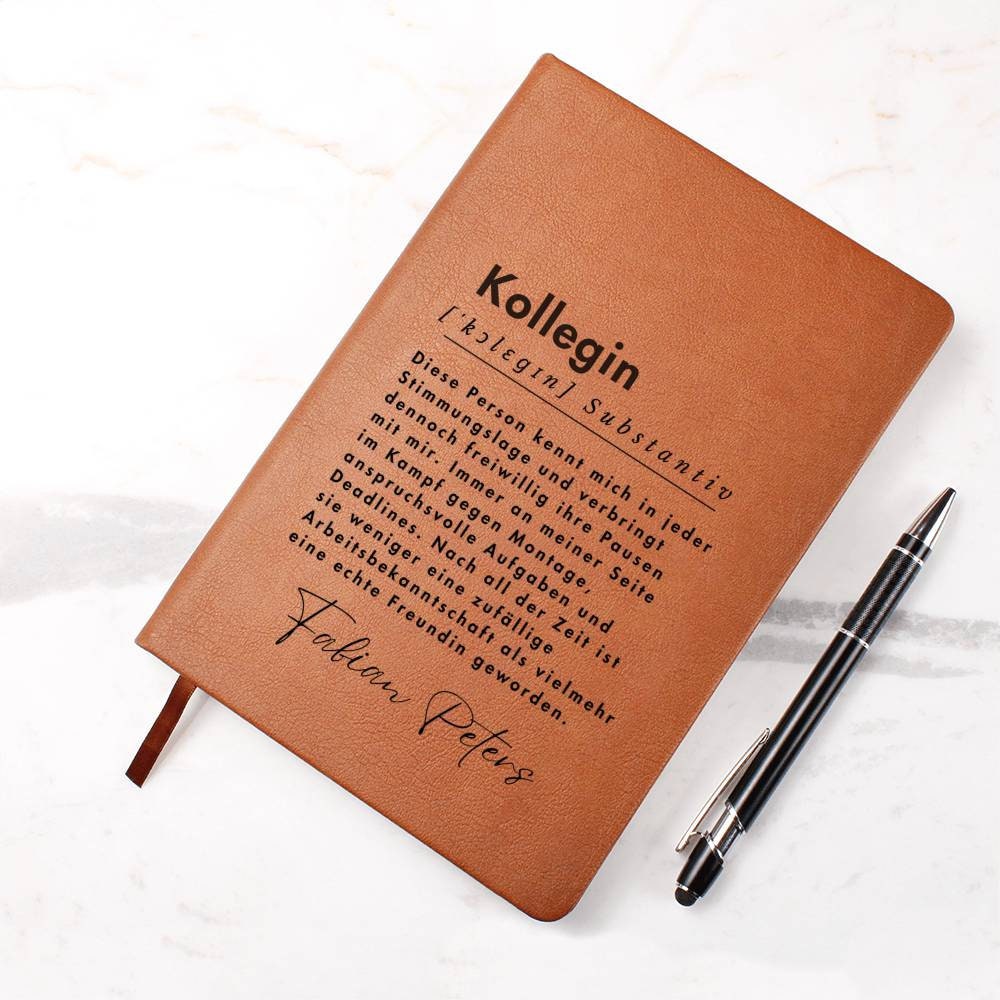 Kollegin
[ˈkɔlɛgɪn] Substantiv
Diese Person kennt mich in jeder
Stimmungslage und verbringt
dennoch freiwillig ihre Pausen
mit mir. Immer an meiner Seite
im Kampf gegen Montage,
anspruchsvolle Aufgaben und
Deadlines. Nach all der Zeit ist
sie weniger eine zufällige
Arbeitsbekanntschaft als vielmehr
eine echte Freundin geworden.
Fabian Peters